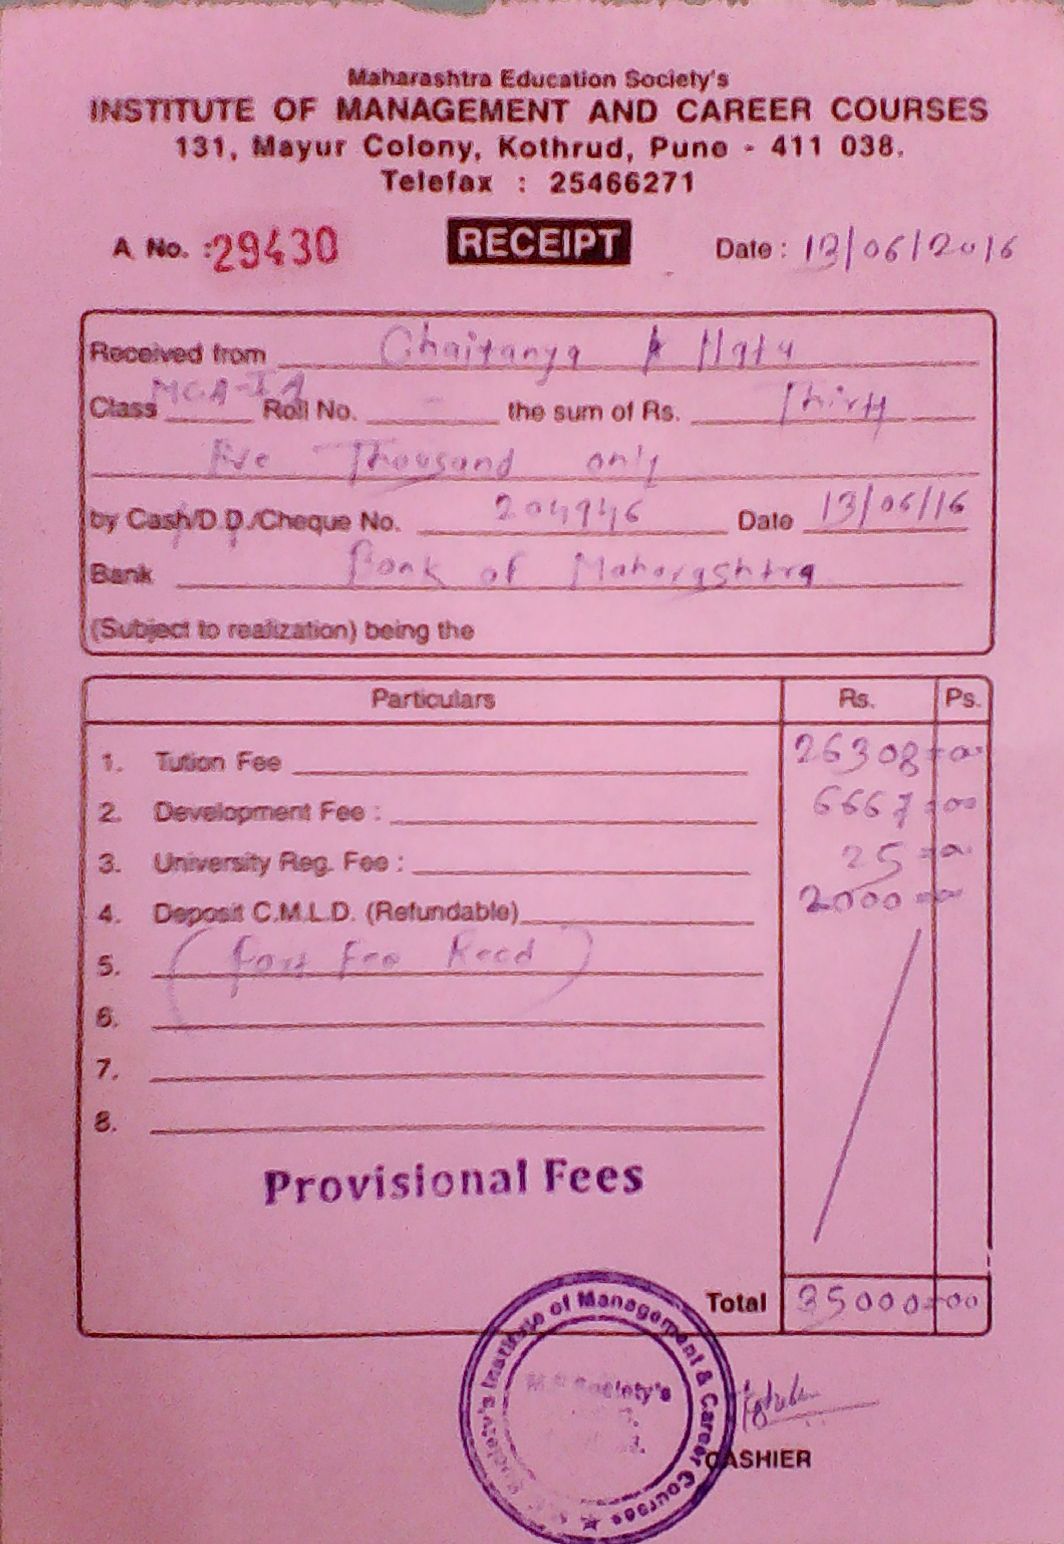 Maharashtra Education Society's
INSTITUTE OF MANAGEMENT AND CAREER COURSES
131, Mayur Colony, Kothrud, Pune - 411 038.
Telefax : 25466271
A No. :29430 RECEIPT Date : 13/06/2016
Received from Chaitanya A Natu
Class MCA-I A Roll No. - the sum of Rs. Thirty
Five Thousand only
by Cash/D.D./Cheque No. 204946 Date 13/06/16
Bank Bank of Maharashtra
(Subject to realization) being the
Particulars Rs. Ps.
1. Tution Fee 26308=00
2. Development Fee : 6667=00
3. University Reg. Fee : 25=00
4. Deposit C.M.L.D. (Refundable) 2000=00
5. (Part Fee Recd)
6.
7.
8.
Provisional Fees
Total 35000=00
Institute of Management & Career Courses
M.E. Society's
CASHIER